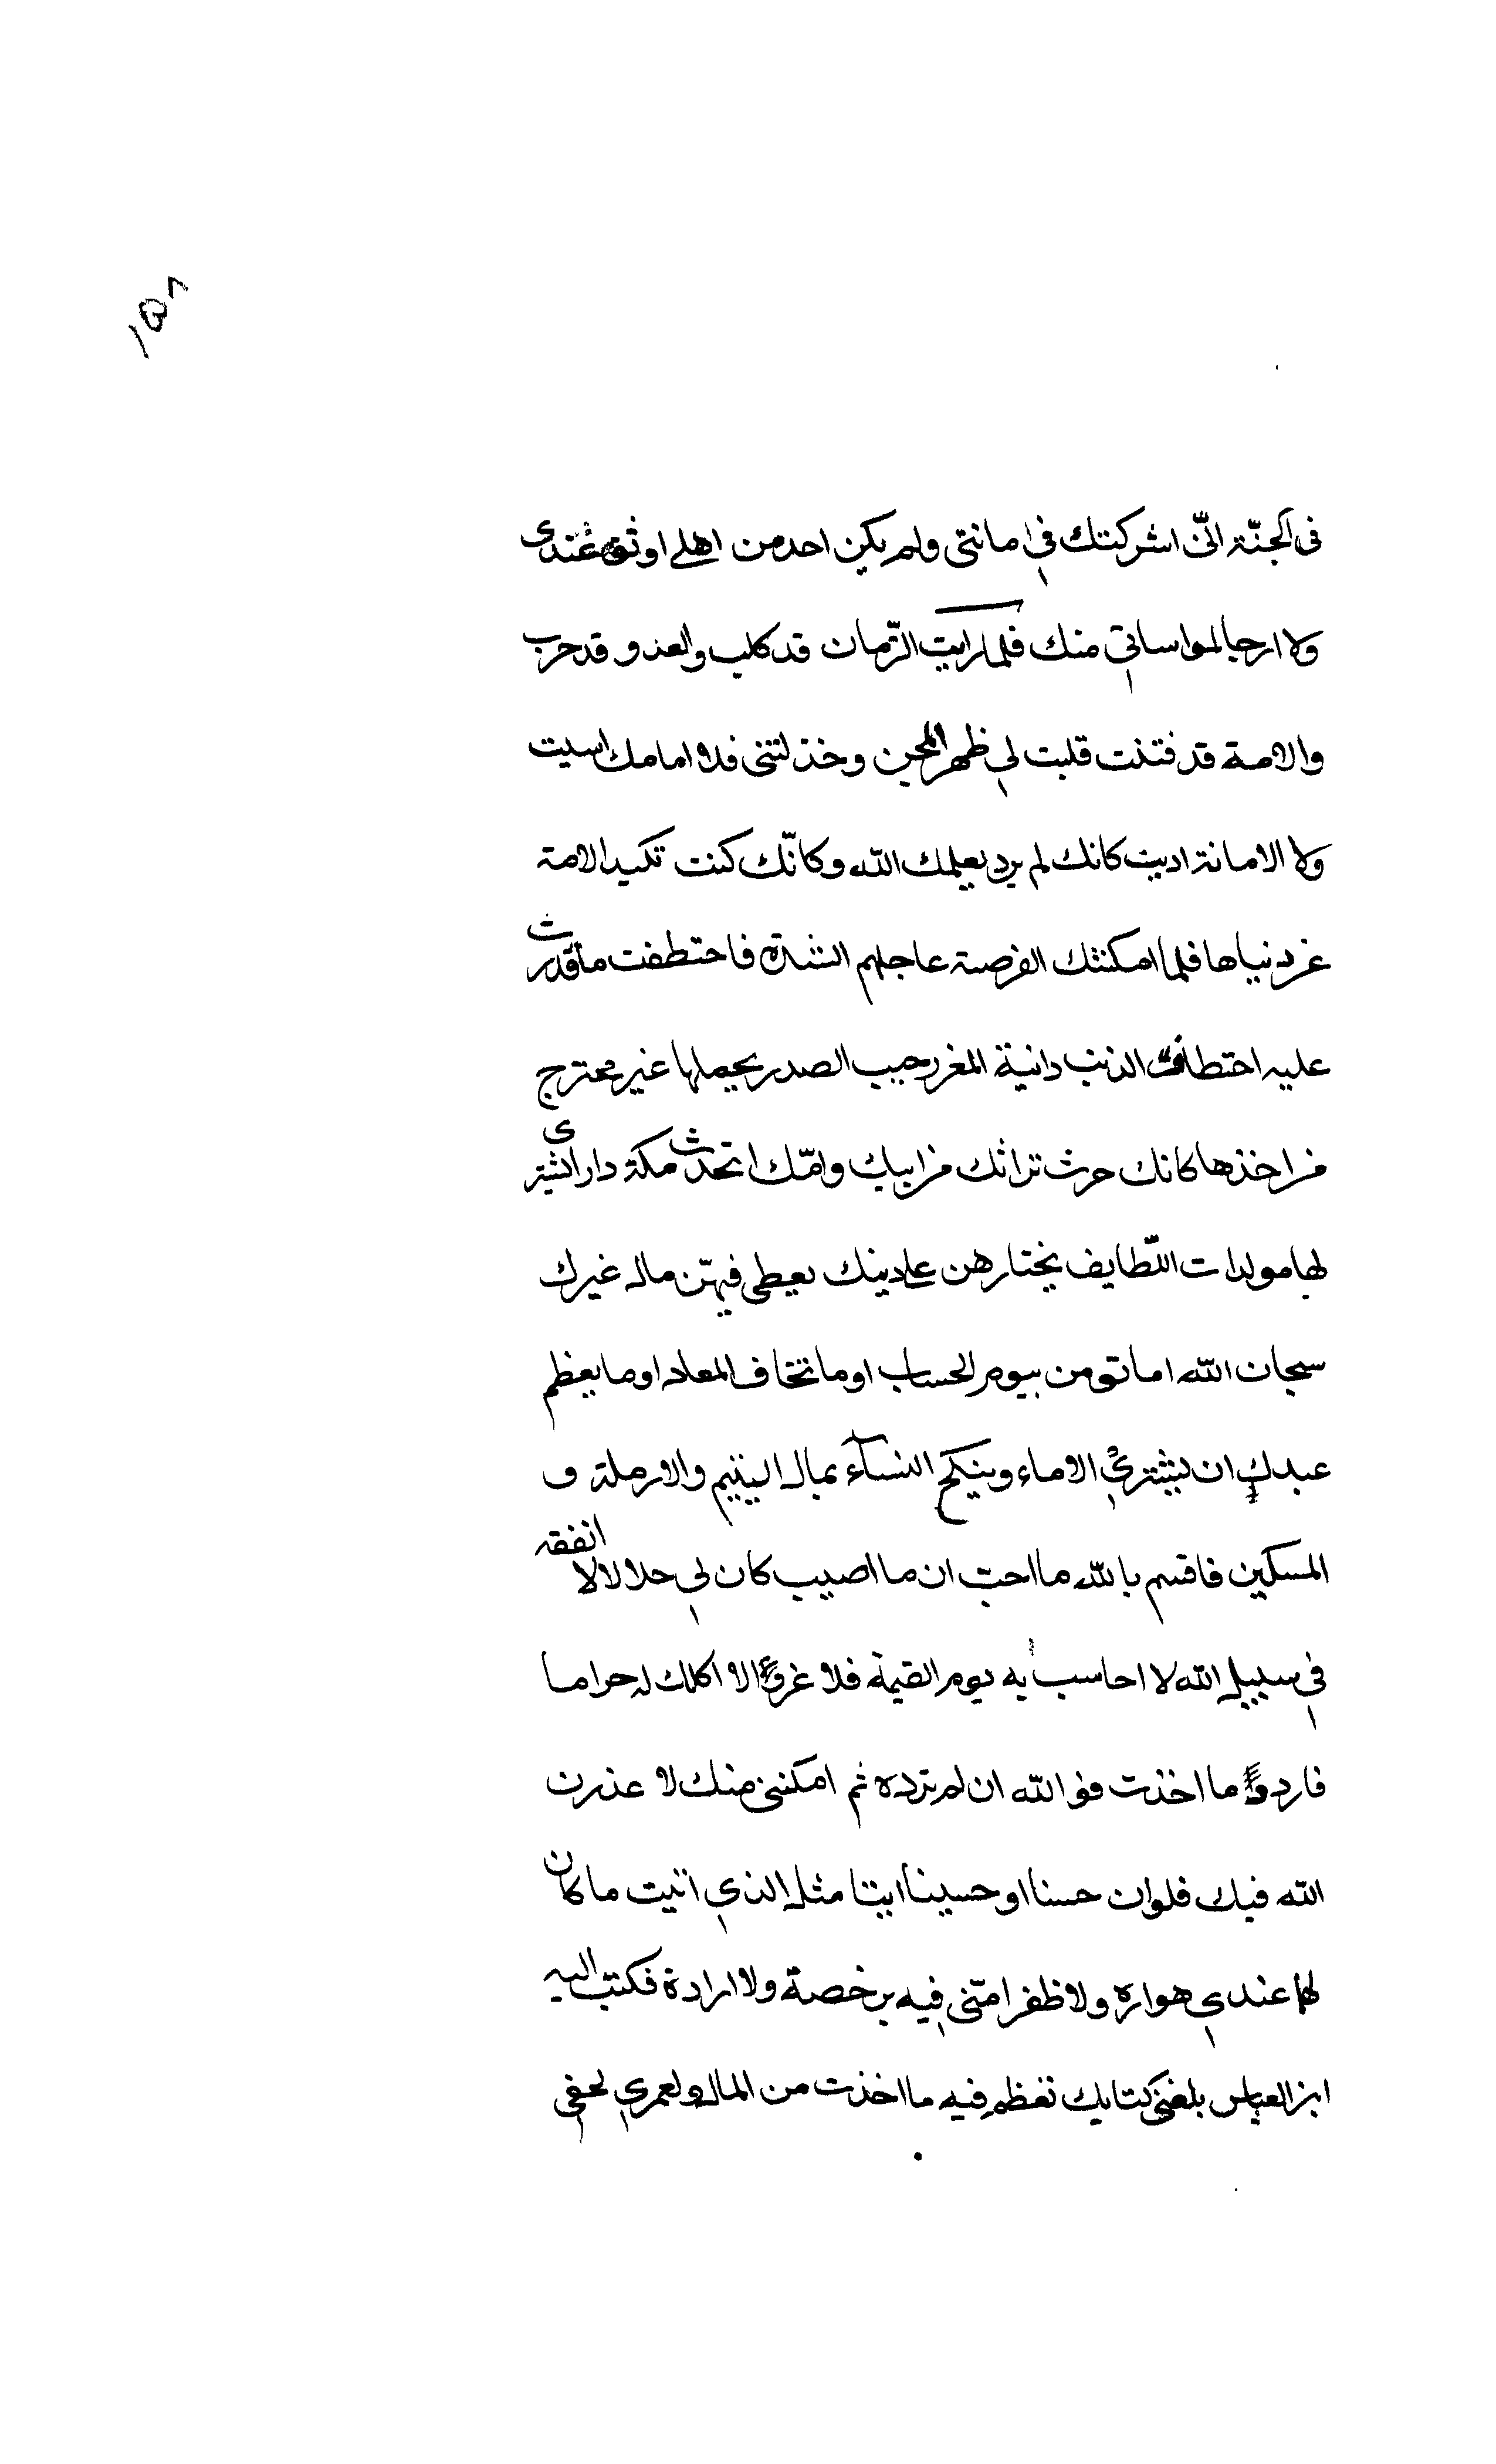 ١٥٨
فى الجنّة انّى اشركتك في امانتى ولم يكن احد من اهلي اوثق عندى
ولا ارجا لمواساتي منك فلما رايت الزّمان قد كلب والعدو قد حرب
والامة قد فتنت قلبت لي ظهر المجن وخذلتنى فلا امامك اسيت
ولا الامانة اديت كانك لم يرد بعلمك الله وكانّك كنت تكيد الامة
عن دنياها فلما امكنتك الفرصة عاجلهم الشدة فاختطفت ما قدرت
عليه اختطاف الذئب دانية المغر رحيب الصدر يحملها غير محترج
من اخذها كانك حرث تراثك من ابيك وامّك اتخذت مكة دار
لها مولدات اللّطايف يختارهن علي دينك يعطى فيهّن ماله غيرك
سبحان الله اما تومن بيوم الحساب اوما تخاف المعاد اوما يعظم
عندك ان يشتري الاماء وينكح النسآء بمال اليتيم والارملة و
المسكين فاقسم بالله ما احبّ ان ما اصيب كان لي حلالا لا انفقه
في سبيل الله لا احاسب به يوم القيمة فلا غروا الا اكلك له حراما
فاردد ما اخذت فو الله ان لم ترده ثم امكننى منك لا عذرن
الله فيك فلو ان حسنا او حسينا ايتا مثل الذي اتيت ما كان
لهما عندي هواره ولا ظفرا منّى فيه برخصة ولا ارادة فكتب اليه
ابن العباس بلغني كتابك تعظم فيه ما اخذت من المال ولعمري لحقي